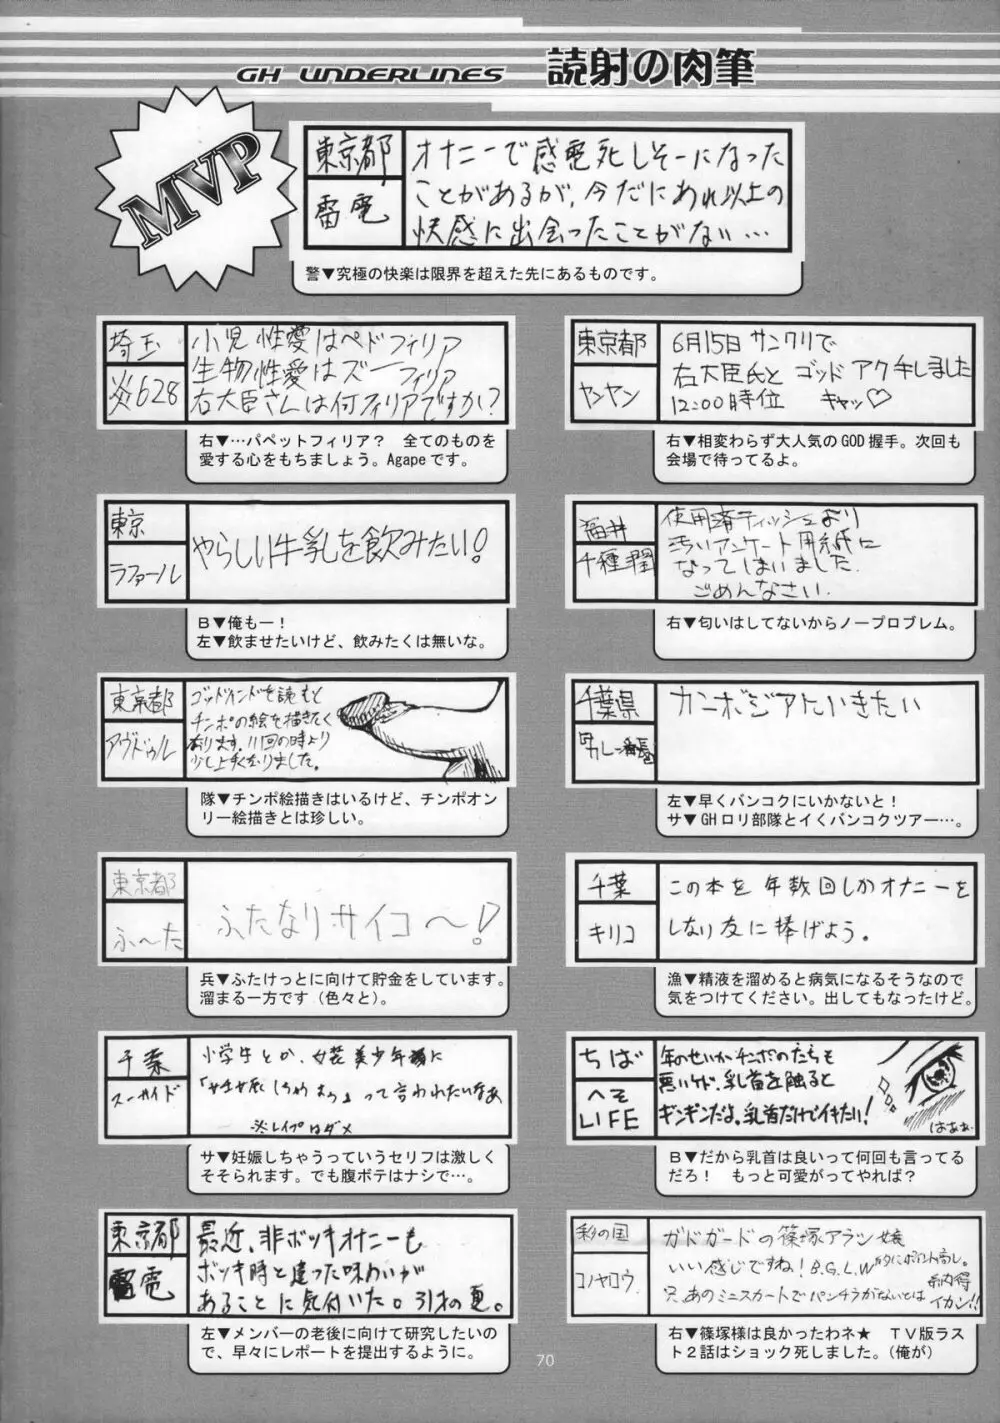 GH UNDERLINES 読射の肉筆
MVP
東京都
雷電
オナニーで感電死しそーになった
ことがあるが、今だにあれ以上の
快感に出会ったことがない…
警▼究極の快楽は限界を超えた先にあるものです。
埼玉
炎628
小児性愛はペドフィリア
生物性愛はズーフィリア
右大臣さんは何フィリアですか?
右▼…パペットフィリア? 全てのものを
愛する心をもちましょう。Agapeです。
東京都
ヤンヤン
6月15日サンクリで
右大臣氏とゴッドアク手しました
12:00時位 キャッ♡
右▼相変わらず大人気のGOD握手。次回も
会場で待ってるよ。
東京
ラファール
やらしい牛乳を飲みたい!
B▼俺もー!
左▼飲ませたいけど、飲みたくは無いな。
福井
千種 潤
使用済ティッシュより
汚いアンケート用紙に
なってしまいました.
ごめんなさい.
右▼匂いはしてないからノープロブレム。
東京都
アヴドゥル
ゴッドハンドを読もと
チンポの絵を描きたく
なります。11回の時より
少し上手くなりました。
隊▼チンポ絵描きはいるけど、チンポオン
リー絵描きとは珍しい。
東京都
ふ〜た
ふたなりサイコ〜!
兵▼ふたけっとに向けて貯金をしています。
溜まる一方です(色々と)。
千葉
キリコ
この本を年数回しかオナニーを
しない友に捧げよう。
漁▼精液を溜めると病気になるそうなので
気をつけてください。出してもなったけど。
ちば
へそ
LIFE
年のせいかチンポのたちも
悪いけど、乳首を触ると
ギンギンだよ。乳首だけでイキたい!
はぁぁ..
B▼だから乳首は良いって何回も言ってる
だろ! もっと可愛がってやれば?
東京都
雷電
最近、非ボッキオナニーも
ボッキ時と違った味わいが
あることに気付いた。31才の夏。
左▼メンバーの老後に向けて研究したいの
で、早々にレポートを提出するように。
彩の国
コノヤロウ
ガドガードの篠塚アラン嬢
いい感じですね! B.G.L.W的にポイント高し。
只、あのミニスカートでパンチラがないとは納得
イカン!!
右▼篠塚様は良かったわネ★ TV版ラス
ト2話はショック死しました。(俺が)
70